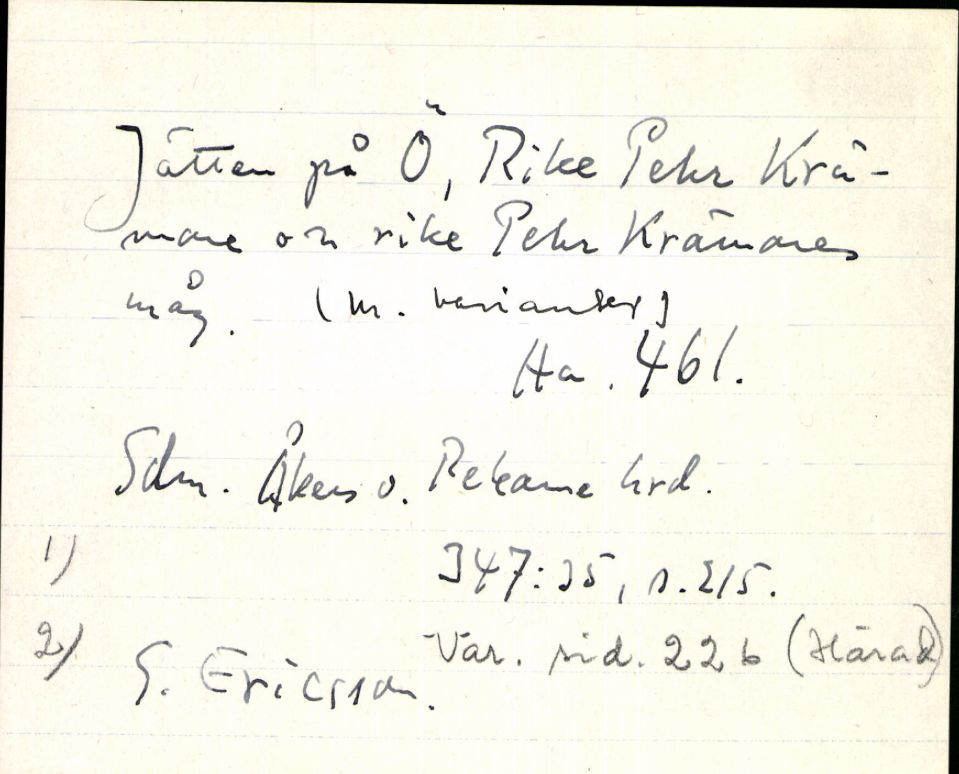 Jätten på Ö, Rike Pehr Krä-
mare och rike Pehr Krämares
måg. (m. varianter)
Ha. 461.
Sdm. Åkers o. Rekarne hrd.
1) 347:35, s. 215.
2) Var. sid. 226 (Härad)
G. Ericsson.